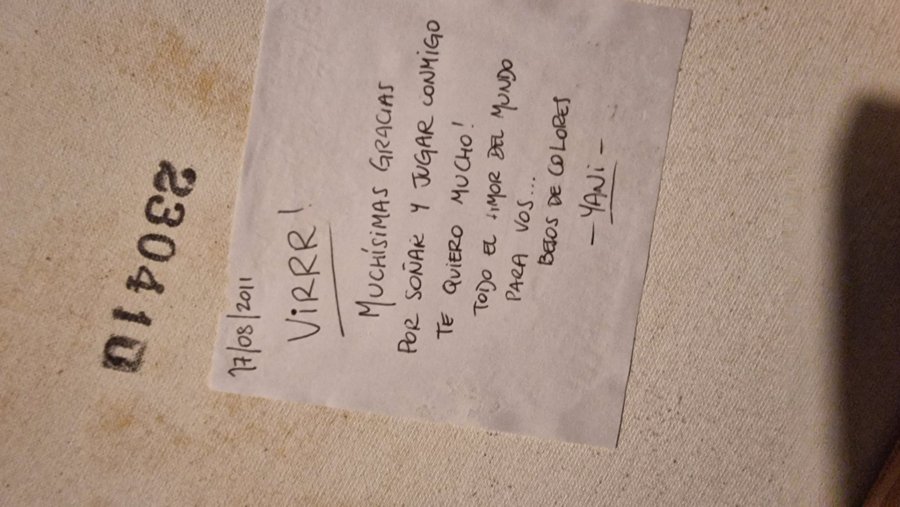 17/08/2011
ViRRR!
MUCHÍSIMAS GRACIAS
POR SOÑAR Y JUGAR CONMIGO
TE QUIERO MUCHO!
TODO EL AMOR DEL MUNDO
PARA VOS...
BESOS DE COLORES
- YANi -
230410